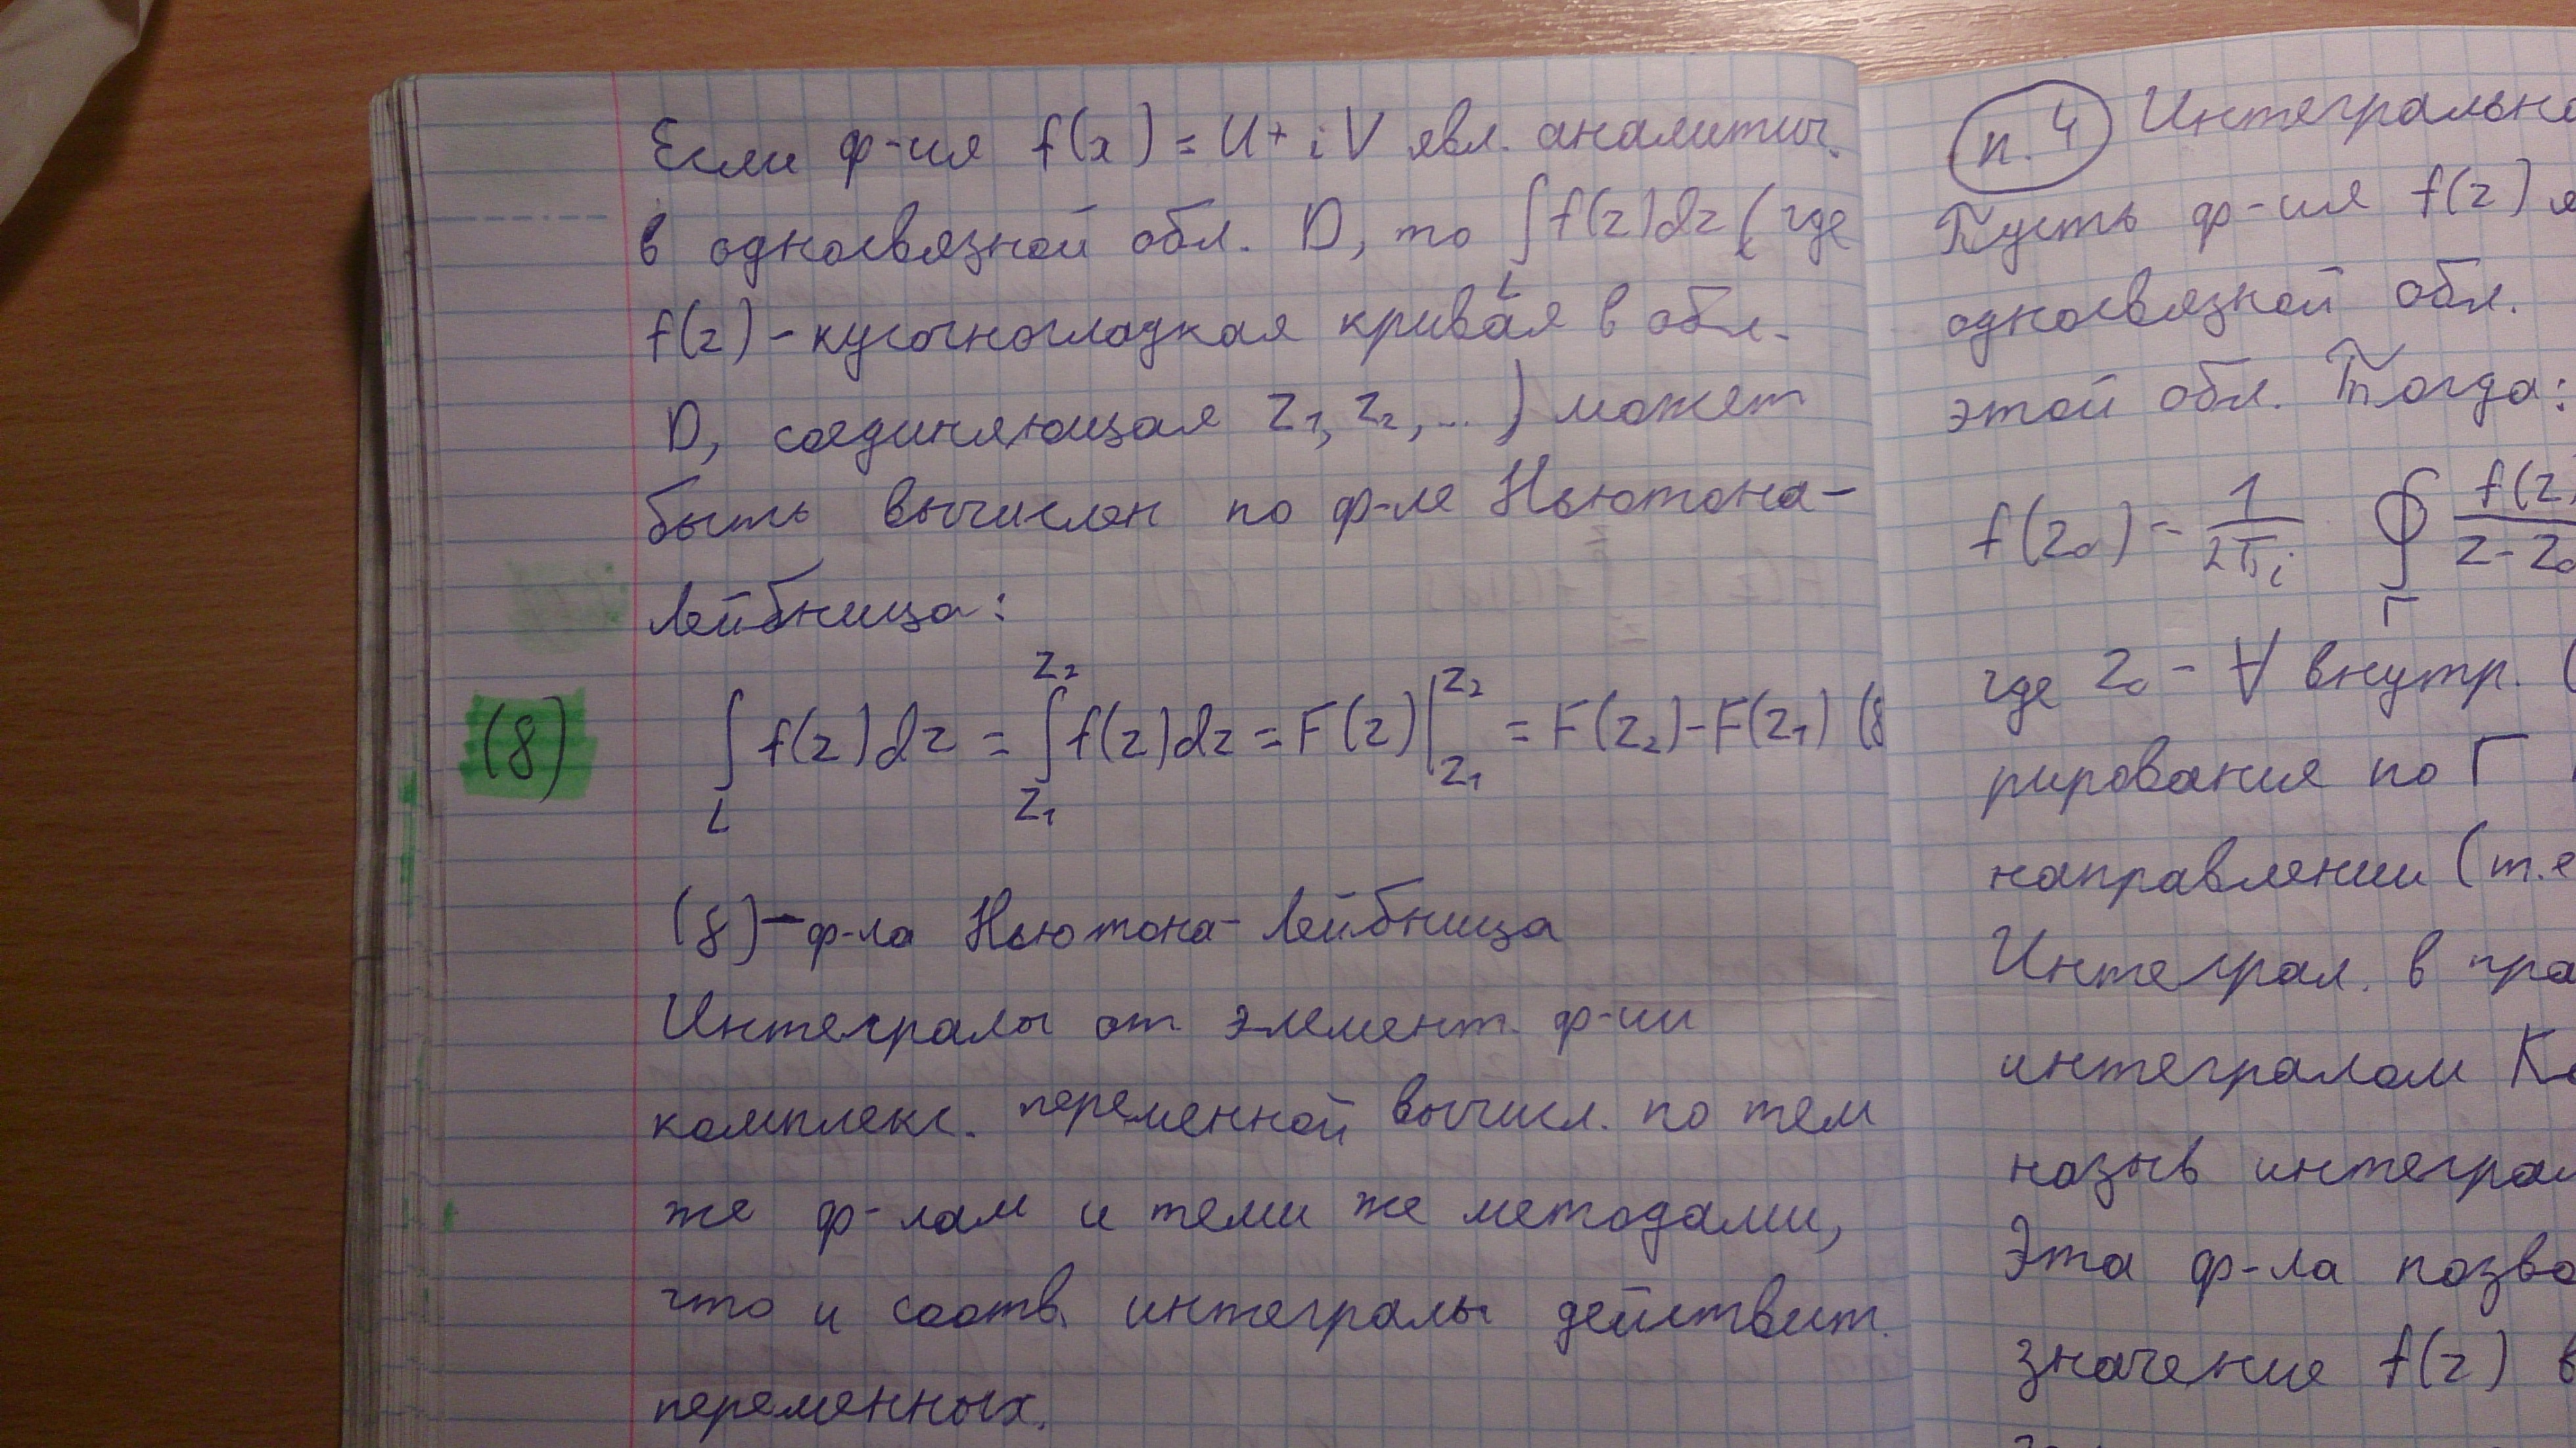 Если ф-ия f(x) = U + iV явл. аналитич.
в односвязной обл. D, то ∫f(z)dz (где
L
f(z) - кусочногладкая кривая в обл.
D, соединяющая z₁, z₂, ...) может
быть вычислен по ф-ле Ньютона-
Лейбница:
(8) ∫_L f(z)dz = ∫_{z₁}^{z₂} f(z)dz = F(z)|_{z₁}^{z₂} = F(z₂) - F(z₁) (8
(8) - ф-ла Ньютона-Лейбница
Интегралы от элемент. ф-ии
комплекс. переменной вычисл. по тем
же ф-лам и теми же методами,
что и соотв. интегралы действит.
переменных.
п. 4 Интегрально
Пусть ф-ия f(z) я
односвязной обл.
этой обл. Тогда:
f(z₀) = 1/2πi ∮_Γ f(z)/z - z₀
где z₀ - ∀ внутр. (
рирования по Γ
направлении (т.е
Интеграл. в пра
интегралом Ко
назыв интеграл
Эта ф-ла позво
значение f(z) в